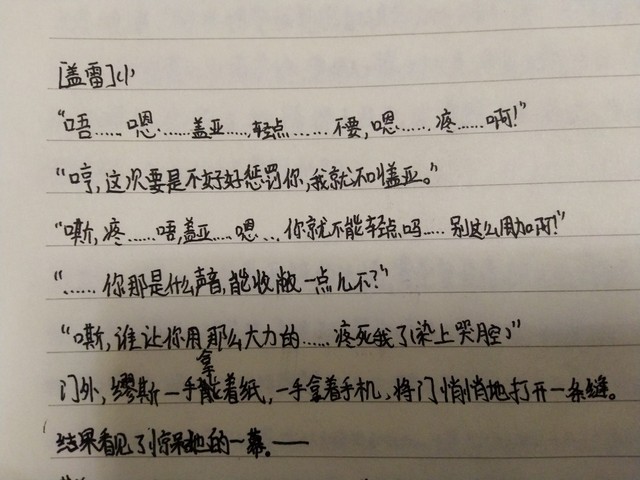 [盖雷]小
“唔……嗯……盖亚……轻点……不要,嗯……疼……啊!”
“哼,这次要是不好好惩罚你,我就不叫盖亚。”
“嘶,疼……唔,盖亚……嗯…你就不能轻点吗……别这么用力啊!”
“……你那是什么声音,能收敝一点儿不?”
“嘶,谁让你用那么大力的……疼死我了(染上哭腔)”
门外,缪斯一手拿着纸,一手拿着手机,将门悄悄地打开一条缝。
结果看见了惊呆她的一幕。——